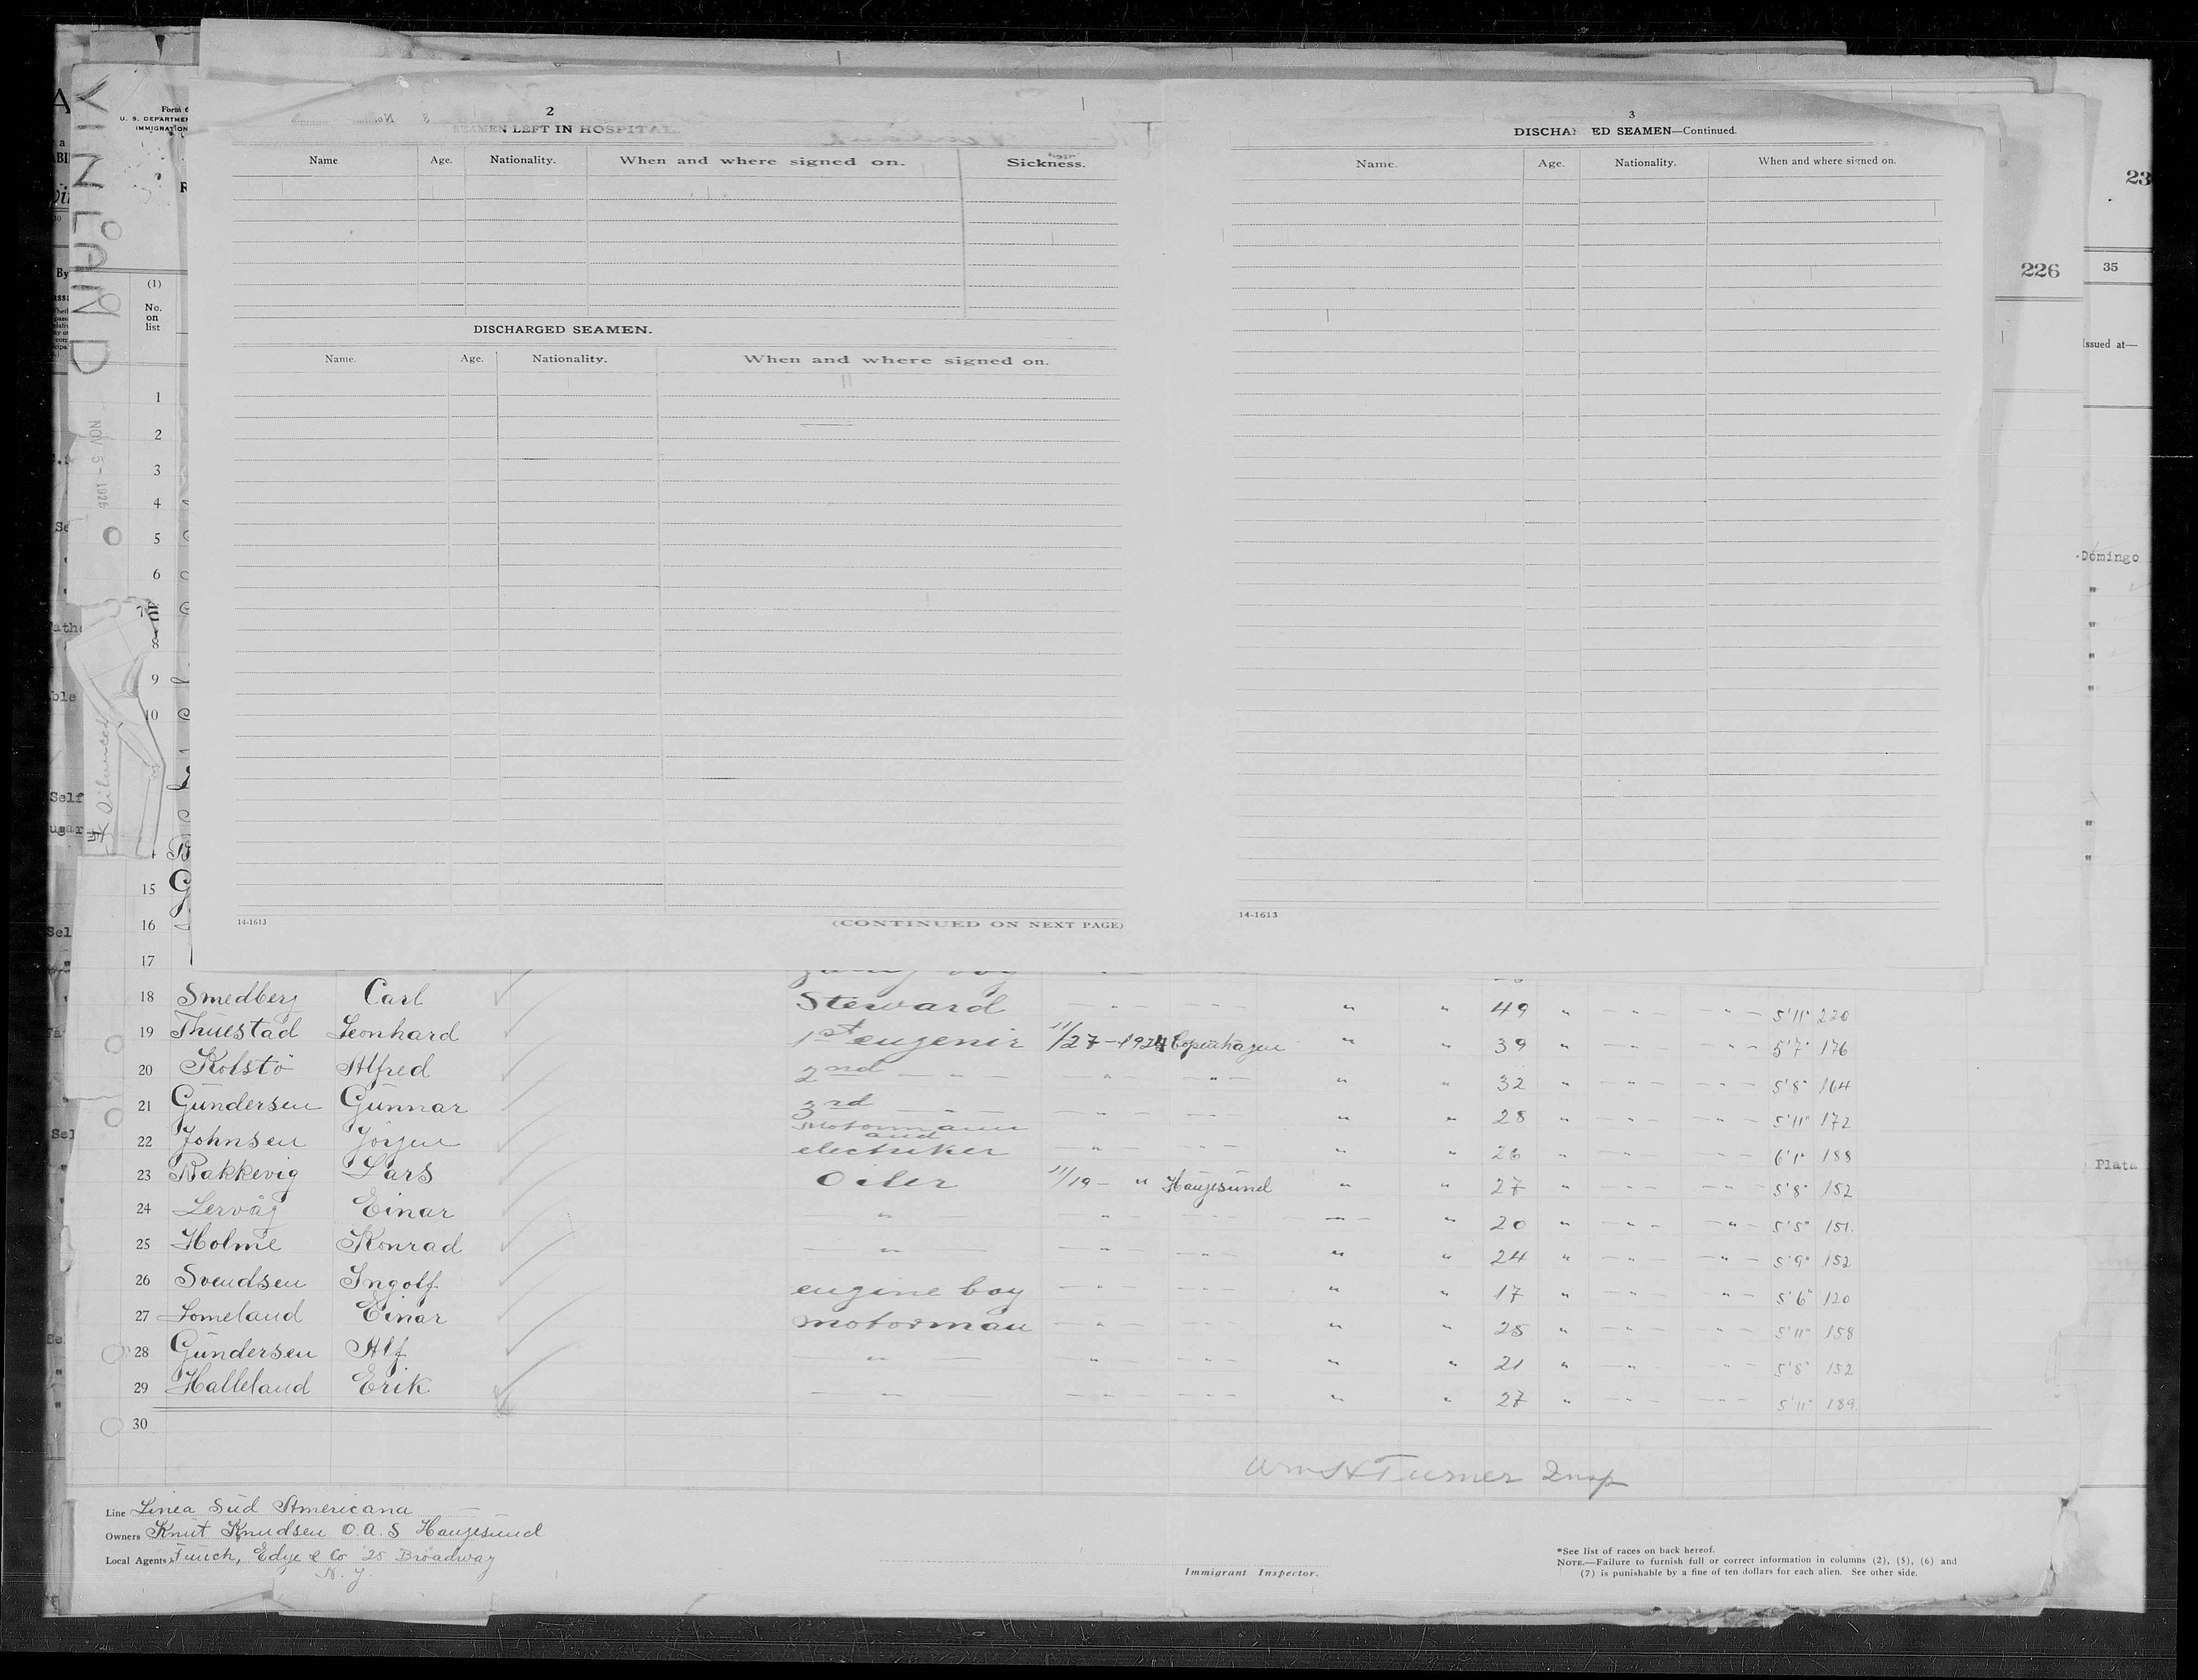 VINLAND
NOV 5 - 1925
Form 6
U. S. DEPARTMEN
IMMIGRATION
(1)
No. on list
2
SEAMEN LEFT IN HOSPITAL.
Name Age. Nationality. When and where signed on. Sickness.
DISCHARGED SEAMEN.
Name. Age. Nationality. When and where signed on.
14-1613
(CONTINUED ON NEXT PAGE)
3
DISCHA ED SEAMEN—Continued.
Name. Age. Nationality. When and where signed on.
14-1613
23
226
35
Issued at—
Domingo
Plata
1
2
3
4
5
6
7
8
9
10
15
16
17
18 Smedberg Carl Steward — " — — " — " " 49 " — " — — " — 5'11" 220
19 Thuestad Leonhard 1st eugenir 11/27-1924 Copenhagen " " 39 " — " — — " — 5'7" 176
20 Kolstö Alfred 2nd — " — — " — — " — " " 32 " — " — — " — 5'8" 164
21 Gundersen Gunnar 3rd — " — — " — — " — " " 28 " — " — — " — 5'11" 172
22 Johnsen Jörgen Motormann and electriker — " — — " — " " 26 " — " — — " — 6'1" 188
23 Rakkevig Lars Oiler 11/19 - " Haugesund " " 27 " — " — — " — 5'8" 152
24 Lervåg Einar — " — — " — — " — — " — " 20 " — " — — " — 5'5" 151.
25 Holme Konrad — " — — " — — " — " " 24 " — " — — " — 5'9" 152
26 Svendsen Ingolf engine boy — " — — " — " " 17 " — " — — " — 5'6" 120
27 Lomeland Einar motorman — " — — " — " " 25 " — " — — " — 5'11" 158
28 Gundersen Alf — " — — " — — " — " " 21 " — " — — " — 5'8" 152
29 Halleland Erik — " — — " — — " — " " 27 " — " — — " — 5'11" 189.
30
Wm H Turner Insp
Line Linea Sud Americana
Owners Knut Knudsen O.A.S Haugesund
Local Agents Funch, Edye & Co 25 Broadway
N.Y.
Immigrant Inspector.
*See list of races on back hereof.
NOTE.—Failure to furnish full or correct information in columns (2), (5), (6) and
(7) is punishable by a fine of ten dollars for each alien. See other side.